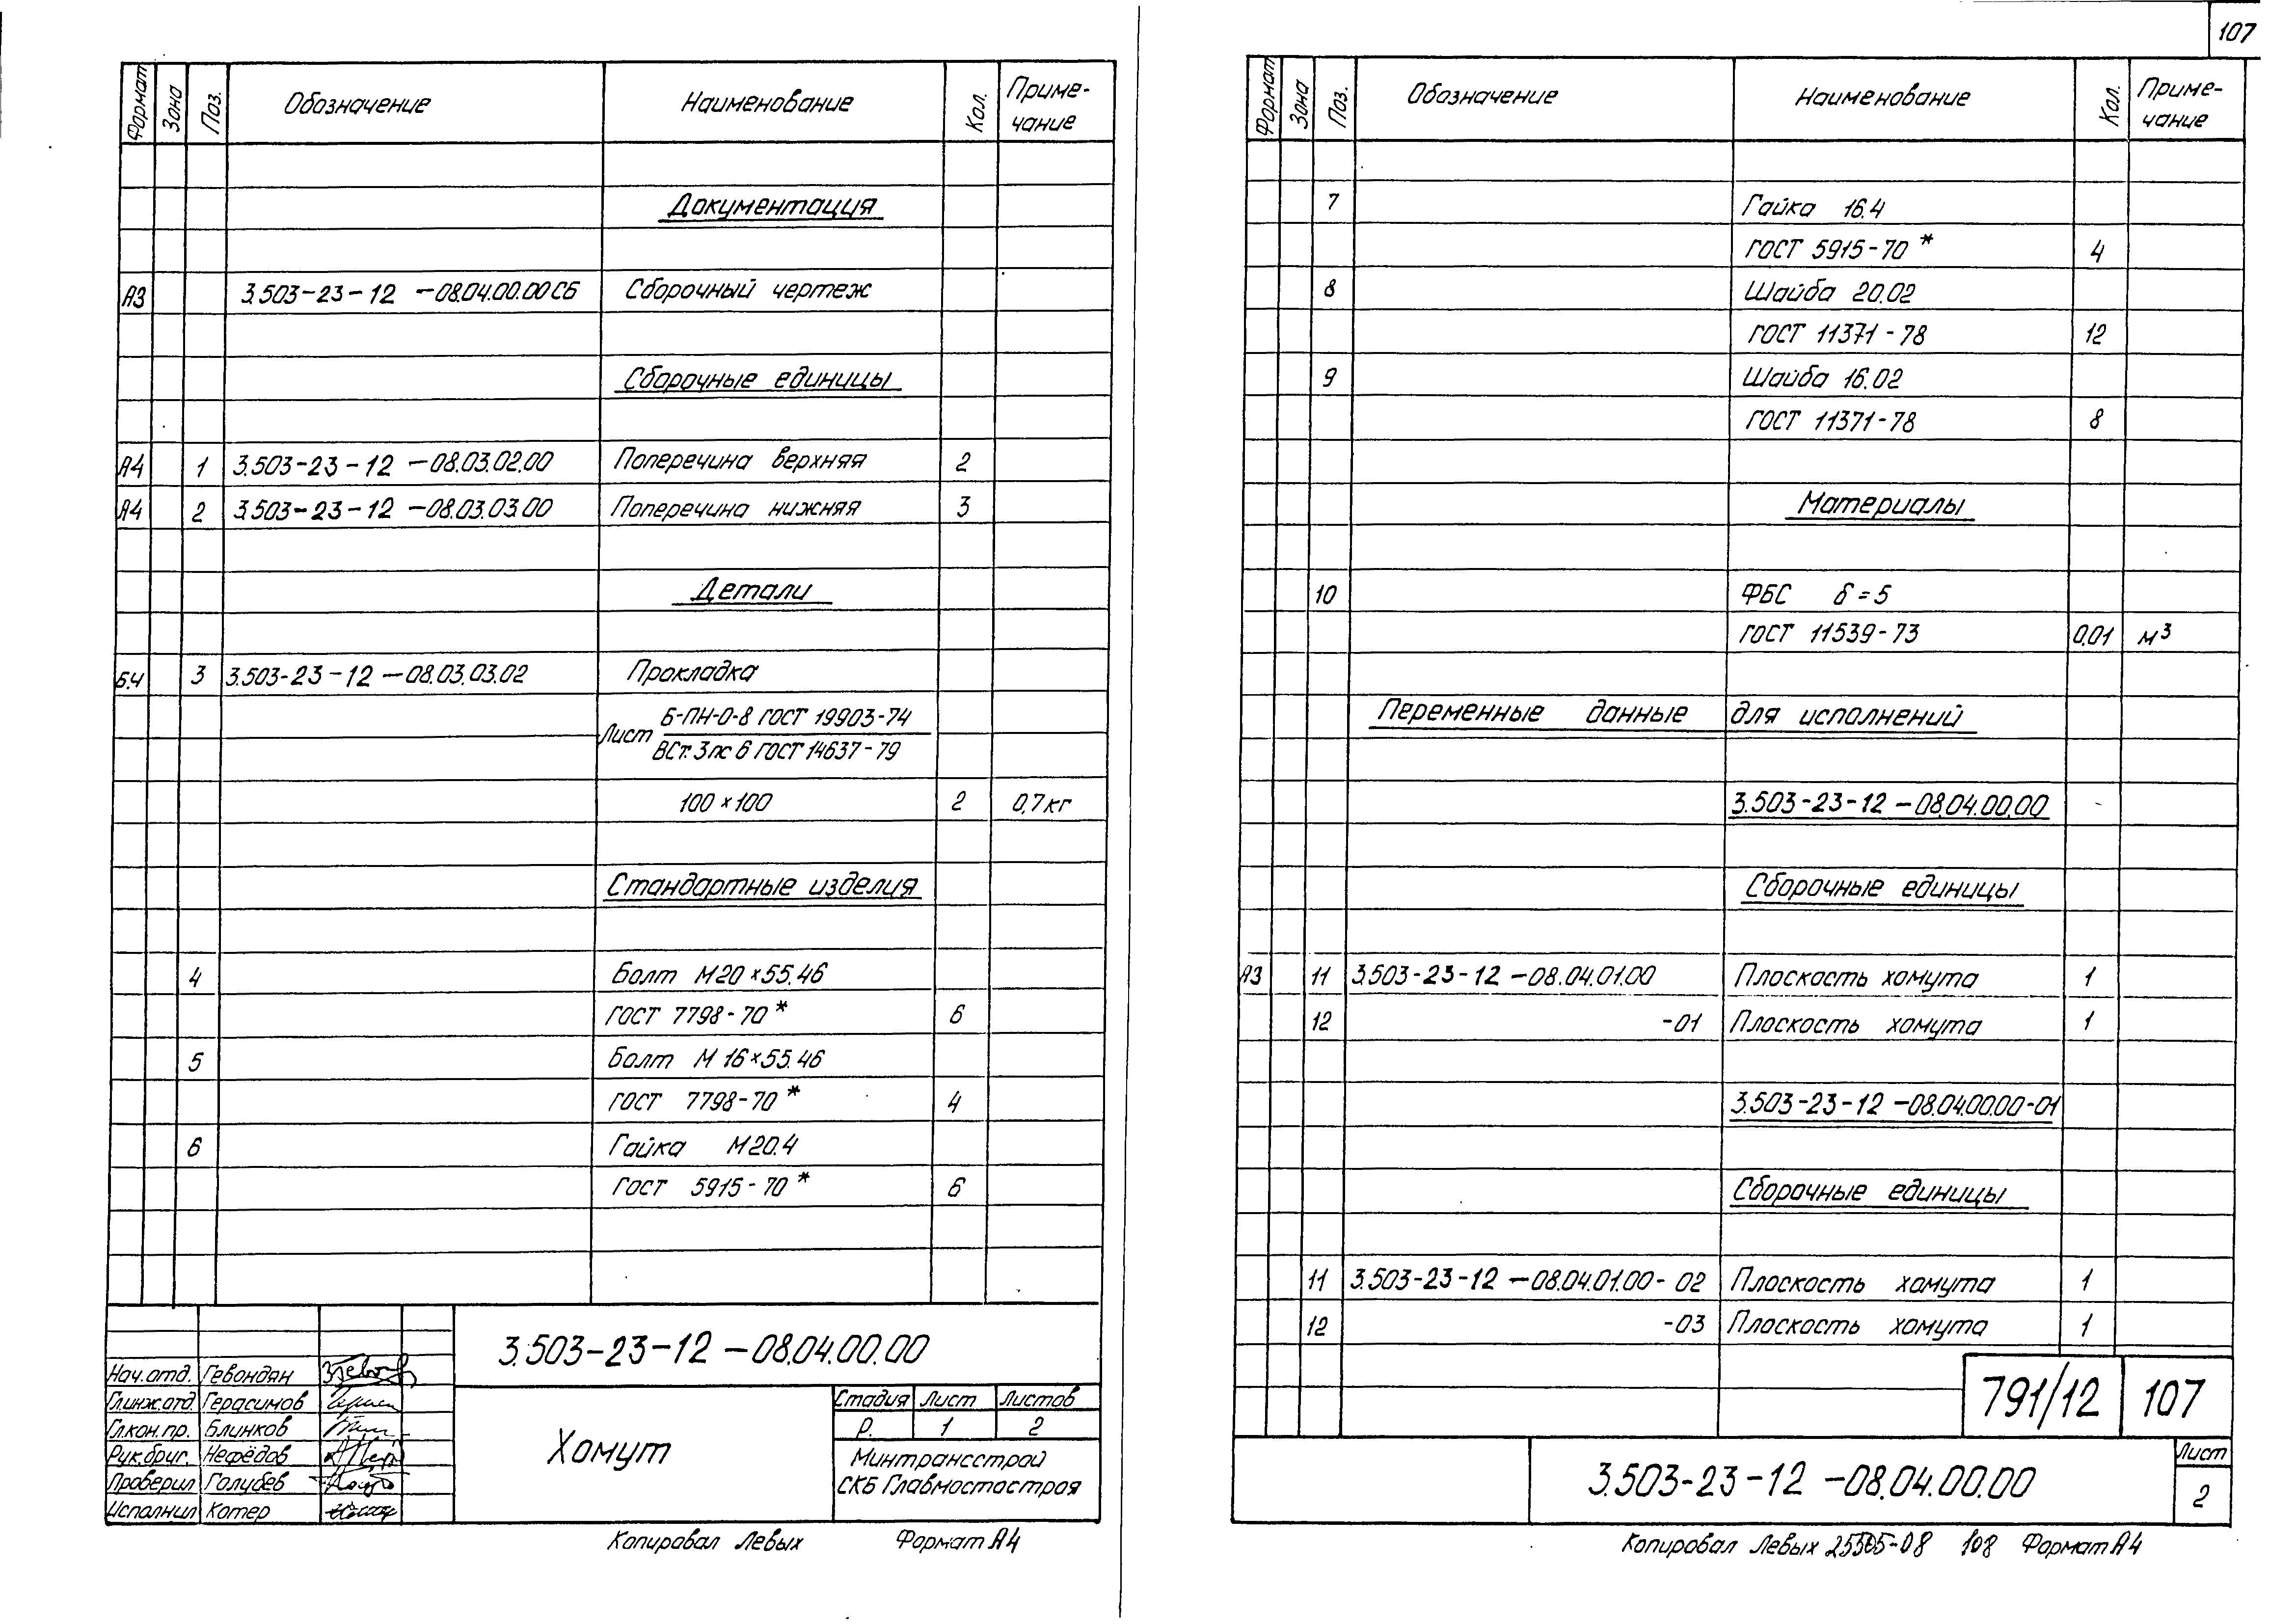 107
Формат Зона Поз. Обозначение Наименование Кол. Приме-
чание
Документация
А3 3.503-23-12 -08.04.00.00СБ Сборочный чертеж
Сборочные единицы
А4 1 3.503-23-12 -08.03.02.00 Поперечина верхняя 2
А4 2 3.503-23-12 -08.03.03.00 Поперечина нижняя 3
Детали
Б.Ч 3 3.503-23-12-08.03.03.02 Прокладка
Б-ПН-О-8 ГОСТ 19903-74
Лист
ВСт.3пс 6 ГОСТ 14637-79
100×100 2 0,7кг
Стандартные изделия
4 Болт М20×55.46
ГОСТ 7798-70* 6
5 Болт М16×55.46
ГОСТ 7798-70* 4
6 Гайка М20.4
ГОСТ 5915-70* 6
3.503-23-12-08.04.00.00
Нач.отд. Гевондян
Гл.инж.отд. Герасимов
Гл.кон.пр. Блинков
Рук.бриг. Нефёдов
Проверил Голубев
Исполнил Котер
Хомут
Стадия Лист Листов
Р. 1 2
Минтрансстрой
СКБ Главмостостроя
Копировал Левых Формат А4
Формат Зона Поз. Обозначение Наименование Кол. Приме-
чание
7 Гайка 16.4
ГОСТ 5915-70* 4
8 Шайба 20.02
ГОСТ 11371-78 12
9 Шайба 16.02
ГОСТ 11371-78 8
Материалы
10 ФБС δ=5
ГОСТ 11539-73 0,01 м³
Переменные данные для исполнений
3.503-23-12-08.04.00.00
Сборочные единицы
А3 11 3.503-23-12-08.04.01.00 Плоскость хомута 1
12 -01 Плоскость хомута 1
3.503-23-12-08.04.00.00-01
Сборочные единицы
11 3.503-23-12-08.04.01.00-02 Плоскость хомута 1
12 -03 Плоскость хомута 1
791/12 107
3.503-23-12-08.04.00.00
Лист
2
Копировал Левых 25505-08 108 Формат А4